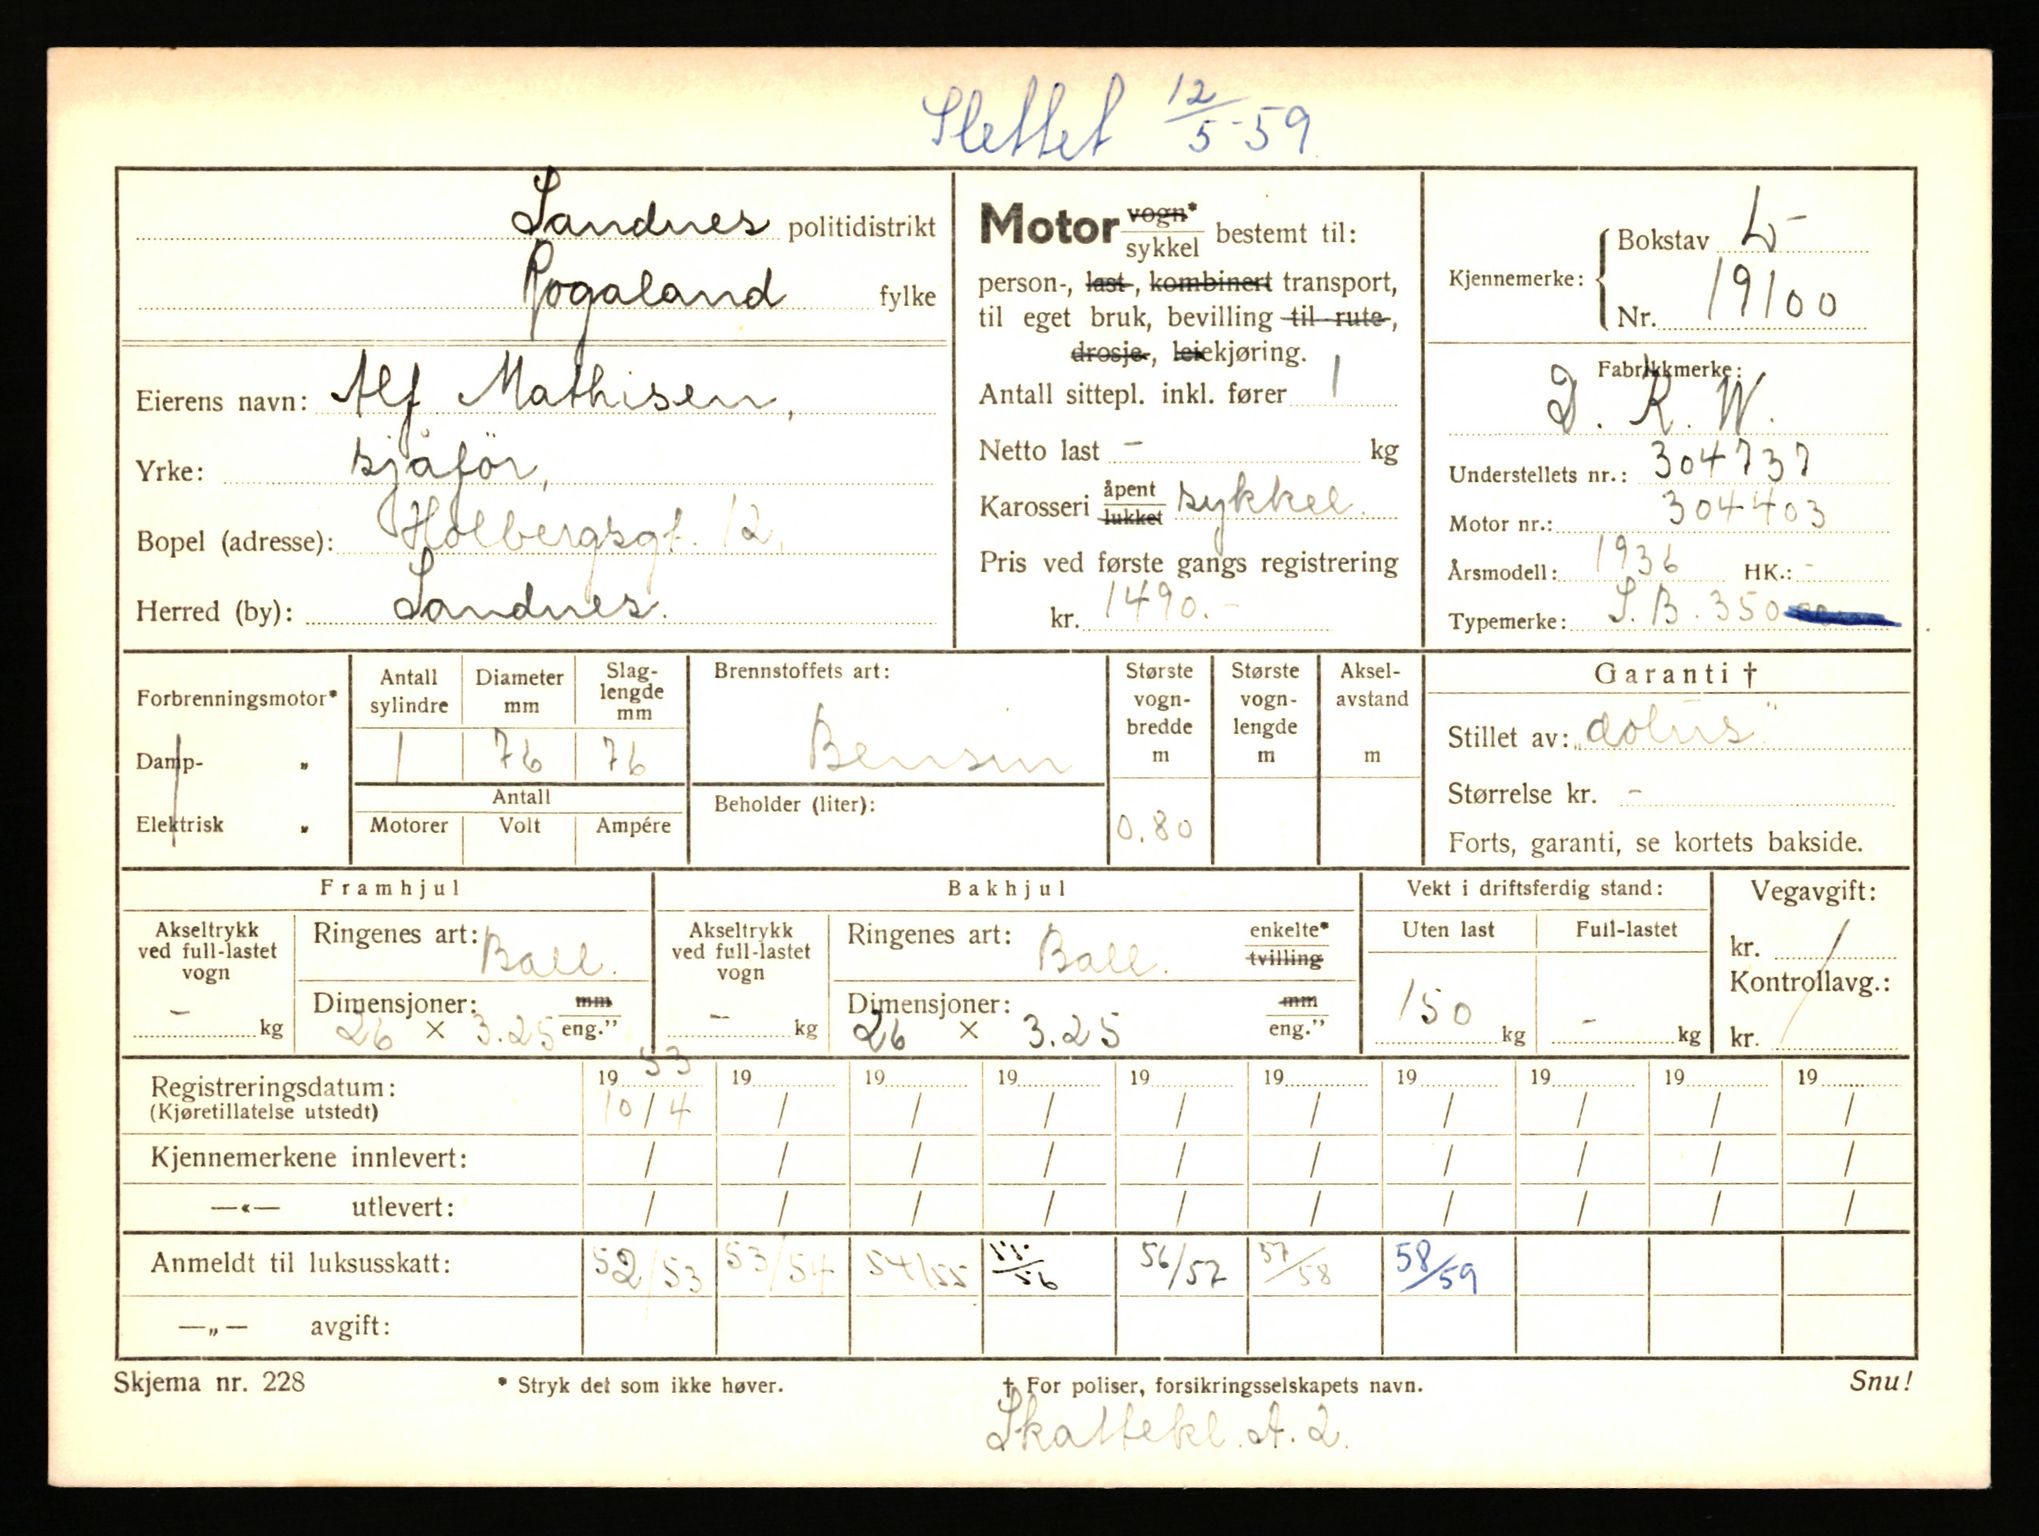 Slettet 12/5-59
Sandnes politidistrikt
Rogaland fylke
Eierens navn: Alf Mathisen,
Yrke: sjåför,
Bopel (adresse): Holbergsgt. 12,
Herred (by): Sandnes.
Motor vogn*/sykkel bestemt til:
person-, last-, kombinert transport,
til eget bruk, bevilling til rute-,
drosje-, leiekjøring.
Antall sittepl. inkl. fører 1
Netto last - kg
Karosseri åpent/lukket sykkel.
Pris ved første gangs registrering
kr. 1490.-
Kjennemerke: Bokstav L-
Nr. 19100
Fabrikkmerke:
D. K. W.
Understellets nr.: 304737
Motor nr.: 304403
Årsmodell: 1936 HK.: -
Typemerke: S.B. 350
Forbrenningsmotor*
Damp- „
Elektrisk „
Antall sylindre Diameter mm Slaglengde mm
1 76 76
Antall
Motorer Volt Ampére
Brennstoffets art:
Bensin
Beholder (liter):
Største vogn-bredde m
0.80
Største vogn-lengde m
Aksel-avstand m
Garanti †
Stillet av: „dolus"
Størrelse kr. -
Forts, garanti, se kortets bakside.
Framhjul
Akseltrykk ved full-lastet vogn
- kg
Ringenes art: Ball.
Dimensjoner: mm
26 × 3.25 eng.”
Bakhjul
Akseltrykk ved full-lastet vogn
- kg
Ringenes art: Ball. enkelte* tvilling
Dimensjoner: mm
26 × 3.25 eng.”
Vekt i driftsferdig stand:
Uten last Full-lastet
150 kg - kg
Vegavgift:
kr.
Kontrollavg.:
kr.
Registreringsdatum: 1953 19 19 19 19 19 19 19 19 19
(Kjøretillatelse utstedt) 10/4 / / / / / / / / /
Kjennemerkene innlevert: / / / / / / / / / /
—«— utlevert: / / / / / / / / / /
Anmeldt til luksusskatt: 52/53 53/54 54/55 55/56 56/57 57/58 58/59
—„— avgift:
Skjema nr. 228 * Stryk det som ikke høver. † For poliser, forsikringsselskapets navn. Snu!
Skattekl. A. 2.